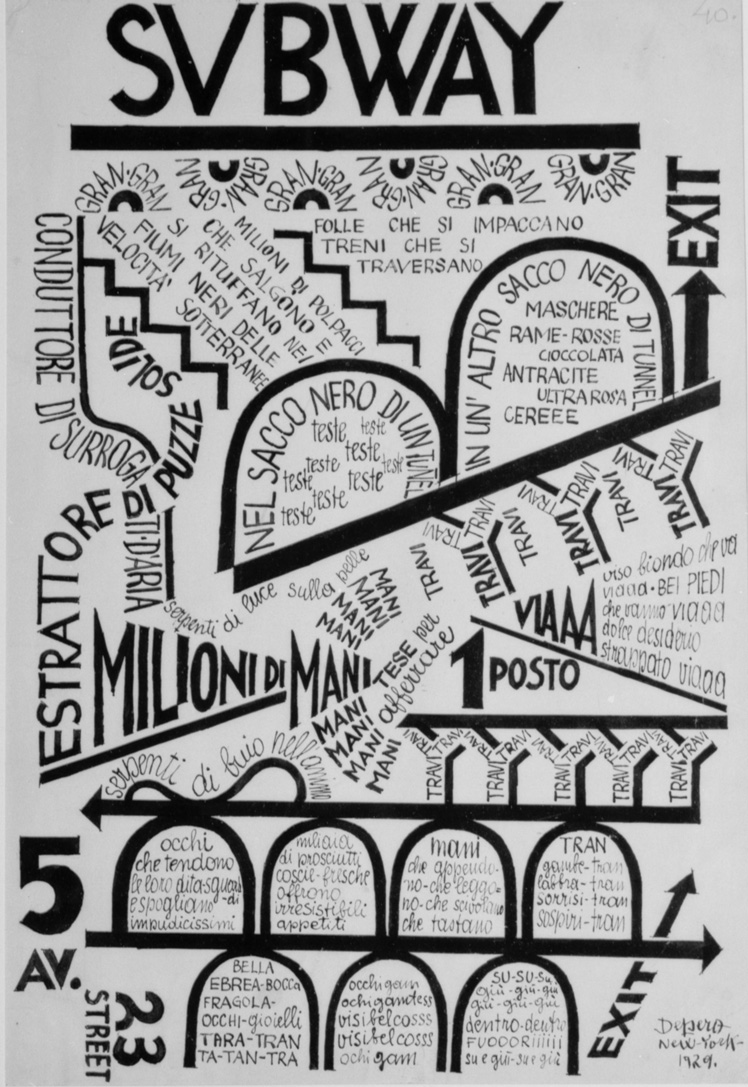 40.
SVBWAY
GRAN·GRAN
GRAN·GRAN
GRAN·GRAN
GRAN·GRAN
GRAN·GRAN
GRAN·GRAN
EXIT
FOLLE CHE SI IMPACCANO
TRENI CHE SI
TRAVERSANO
MILIONI DI POLPACCI
CHE SALGONO E
SI RITUFFANO NEI
FIUMI NERI DELLE
VELOCITÀ SOTTERRANEE
CONDUTTORE DI SURROGATI·D'ARIA
ESTRATTORE DI PUZZE SOLIDE
NEL SACCO NERO DI UN TUNEL
teste teste
teste
teste teste
teste teste
teste
teste
IN UN' ALTRO SACCO NERO DI TUNNEL
MASCHERE
RAME-ROSSE
CIOCCOLATA
ANTRACITE
ULTRAROSA
CEREEE
TRAVI TRAVI TRAVI
TRAVI TRAVI TRAVI
TRAVI TRAVI TRAVI
TRAVI TRAVI TRAVI
serpenti di luce sulla pelle
MILIONI DI MANI
MANI
MANI
MANI
MANI
TESE per
afferrare
MANI
MANI
MANI
MANI
VIAAA
viso biondo che va
viaaa·BEI PIEDI
che vanno viaaa
dolce desiderio
strappato viaaa
1 POSTO
TRAVI TRAVI TRAVI TRAVI TRAVI TRAVI TRAVI TRAVI
TRAVI TRAVI TRAVI TRAVI TRAVI
serpenti di buio nell'anima
5
AV.
23
STREET
occhi
che tendono
le loro dita-
e spogliano-di
impudicissimi
miliaia
di prosciutti
coscie-frische
offrono
irresistibili
appetiti
mani
che appendo-
no-che leggo-
no-che scivolano
che tastano
TRAN
gambe-tran
labbra-tran
sorrisi-tran
sospiri-tran
BELLA
EBREA-BOCCA
FRAGOLA-
OCCHI-gioielli
TARA-TRAN
TA-TAN-TRA
occhi gam
ochi gambetess
visi belcosss
visi belcosss
ochi gam
SU-SU-SU
giù-giù-giù
giù-giù-giù
dentro-dentro
FUODORiiiiii
su e giù-su e giù
EXIT
Depero
New-York-
1929.